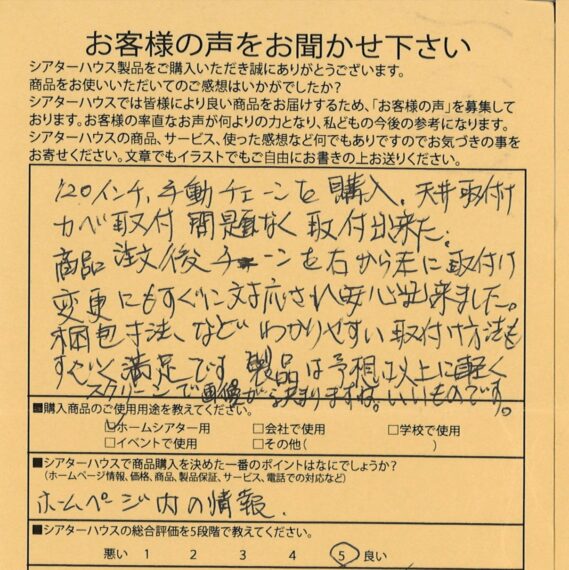 お客様の声をお聞かせ下さい
シアターハウス製品をご購入いただき誠にありがとうございます。
商品をお使いいただいてのご感想はいかがでしたか？
シアターハウスでは皆様により良い商品をお届けするため、「お客様の声」を募集して
おります。お客様の率直なお声が何よりの力となり、私どもの今後の参考になります。
シアターハウスの商品、サービス、使った感想など何でもありですのでお気づきの事を
お寄せください。文章でもイラストでもご自由にお書きの上お送りください。
120インチ、手動チェーンを購入。天井取付け
カベ取付 問題なく取付出来た。
商品注文後チェーンを右から左に取付け
変更にもすぐに対応され安心出来ました。
梱包寸法、などわかりやすい取付け方法も
すべて満足です 製品は予想以上に軽く
スクリーンで画像が決まりますね。いいものです。
■購入商品のご使用用途を教えてください。
☑ホームシアター用 □会社で使用 □学校で使用
□イベントで使用 □その他( )
■シアターハウスで商品購入を決めた一番のポイントはなにでしょうか？
(ホームページ情報、価格、商品、製品保証、サービス、電話での対応など)
ホームページ内の情報.
■シアターハウスの総合評価を5段階で教てください。
悪い 1 2 3 4 5 良い